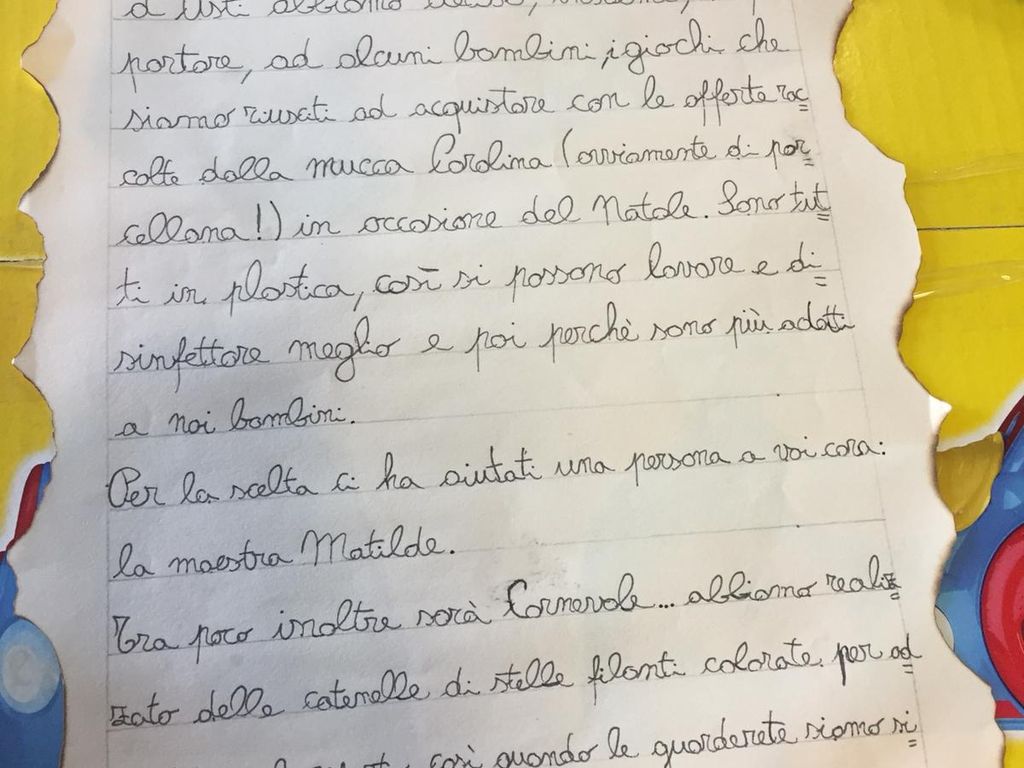 portare, ad alcuni bambini, i giochi che
siamo riusati ad acquistare con le offerte rac=
colte dalla mucca Carolina (ovviamente di por=
cellana!) in occasione del Natale. Sono tut=
ti in plastica, così si possono lavare e di=
sinfettare meglio e poi perchè sono più adatti
a noi bambini.
Per la scelta ci ha aiutati una persona a voi cara:
la maestra Matilde.
Tra poco inoltre sarà Carnevale... abbiamo realiz=
zato delle catenelle di stelle filanti colorate per ad=
così quando le guarderete siamo si=